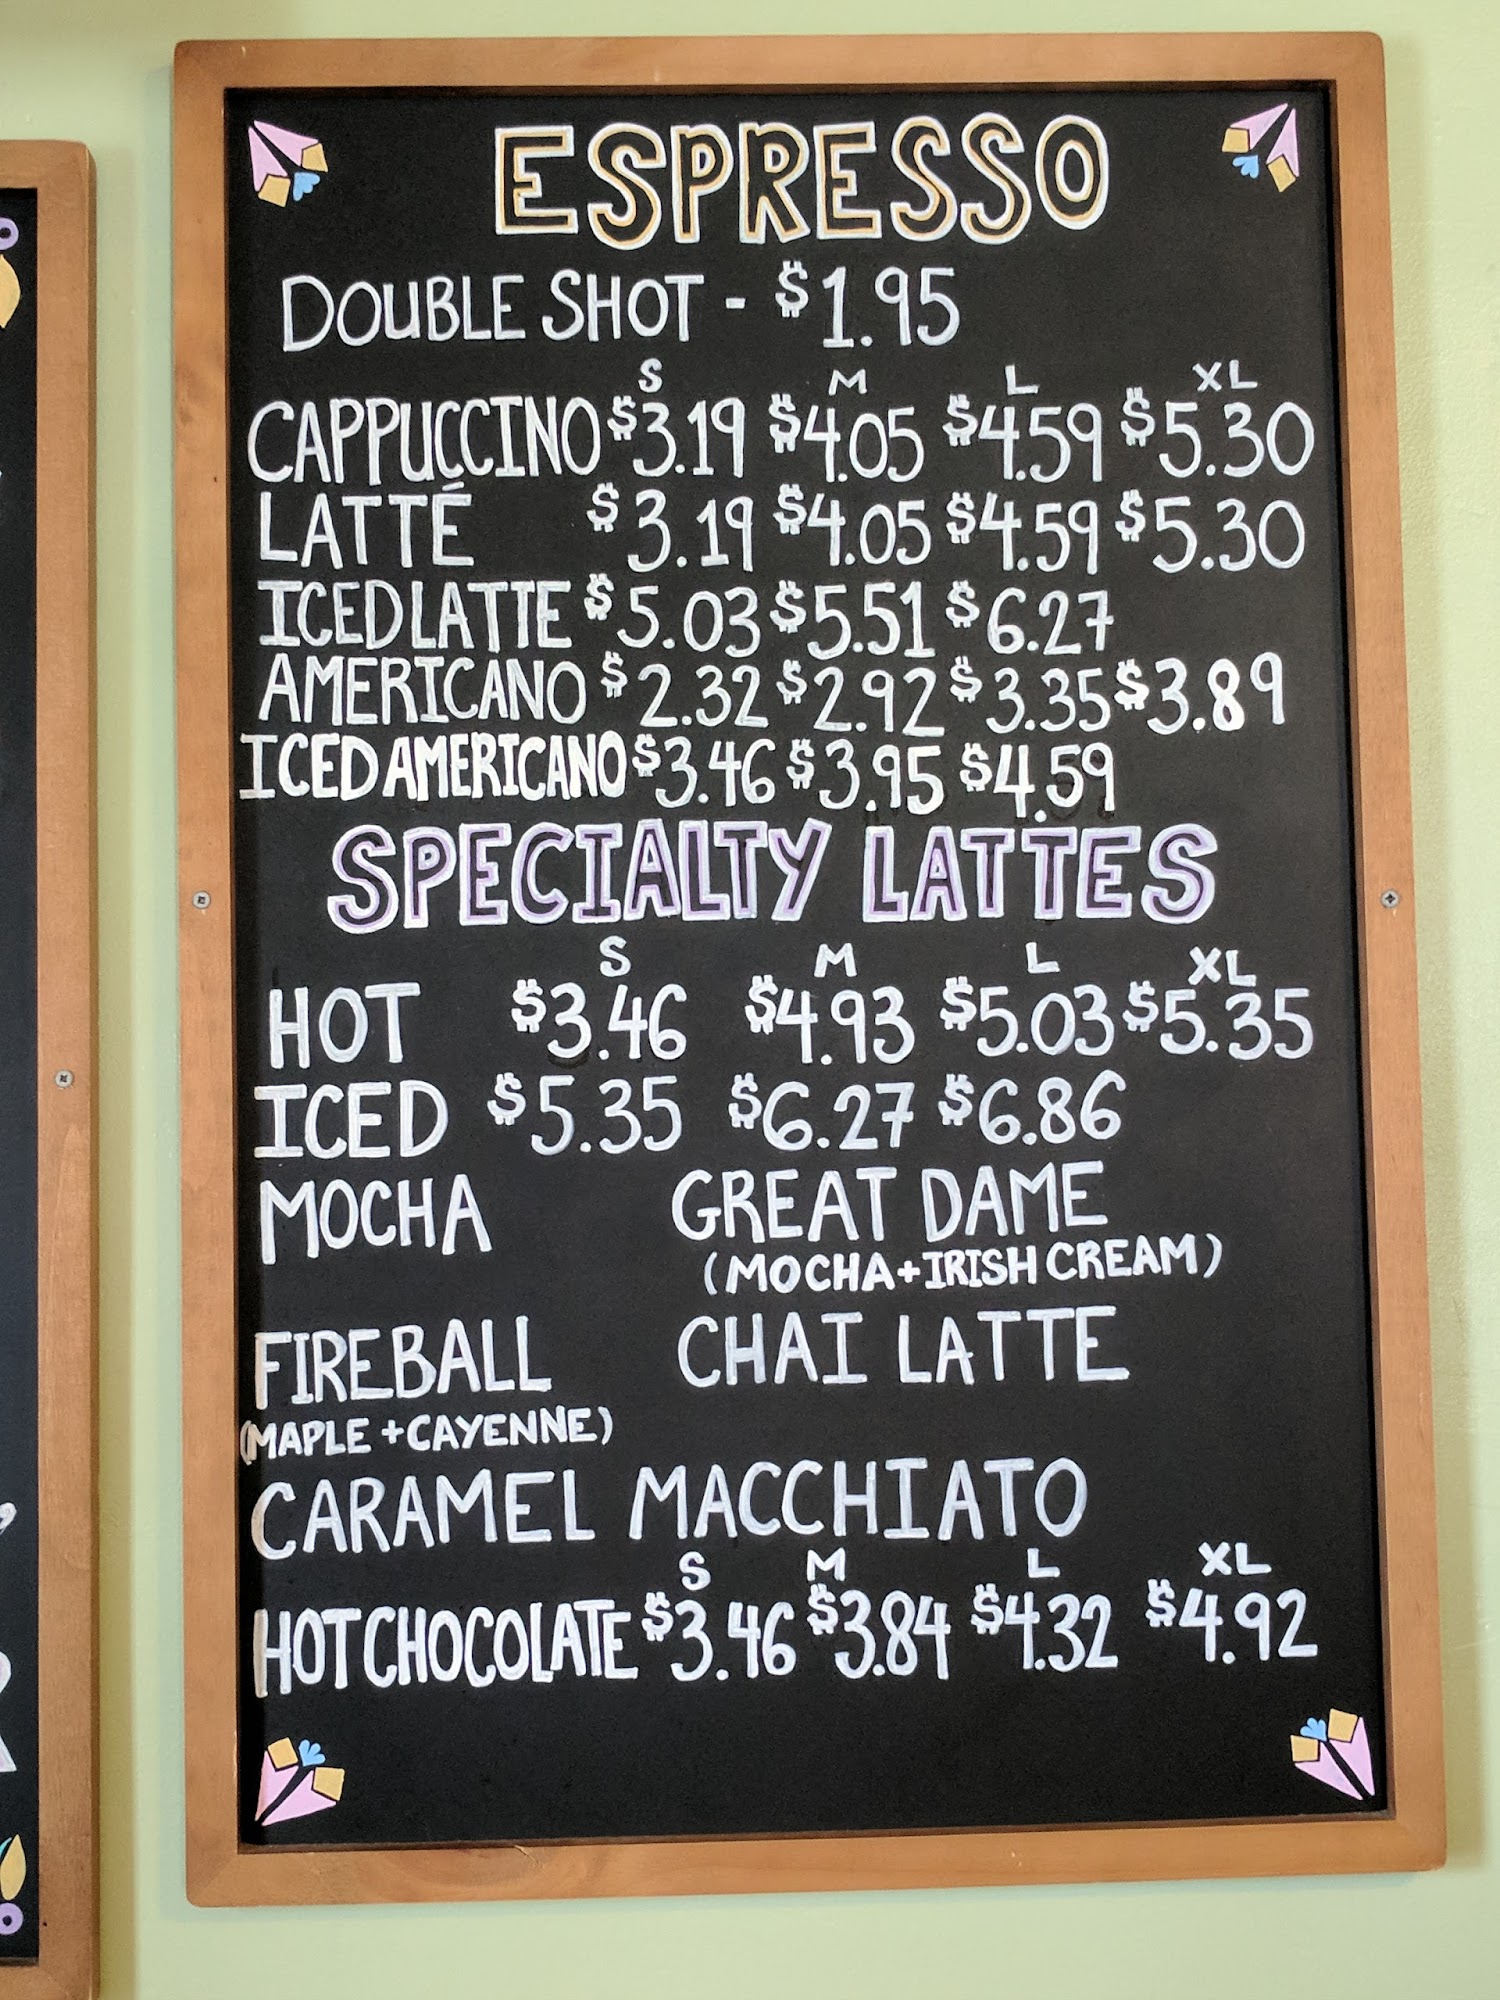 ESPRESSO
DOUBLE SHOT - $1.95
S M L XL
CAPPUCCINO $3.19 $4.05 $4.59 $5.30
LATTÉ $3.19 $4.05 $4.59 $5.30
ICED LATTE $5.03 $5.51 $6.27
AMERICANO $2.32 $2.92 $3.35 $3.89
ICED AMERICANO $3.46 $3.95 $4.59
SPECIALTY LATTES
S M L XL
HOT $3.46 $4.93 $5.03 $5.35
ICED $5.35 $6.27 $6.86
MOCHA GREAT DAME
(MOCHA+IRISH CREAM)
FIREBALL CHAI LATTE
(MAPLE + CAYENNE)
CARAMEL MACCHIATO
S M L XL
HOT CHOCOLATE $3.46 $3.84 $4.32 $4.92